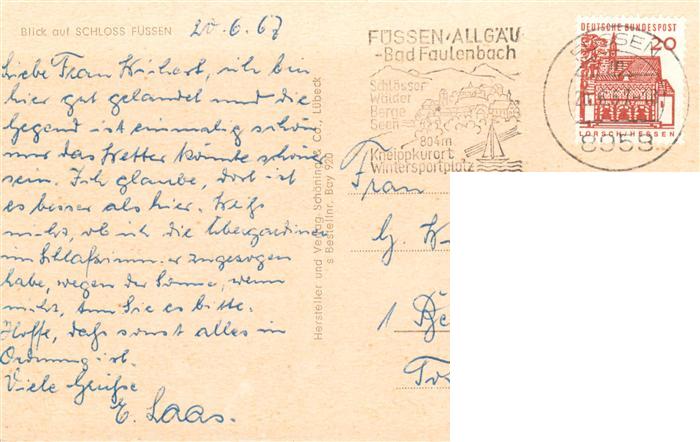 Blick auf SCHLOSS FÜSSEN
20.6.67
Liebe Frau, ich bin
hier gut gelandet und die
Gegend ist einmalig schön
nur das Wetter könnte schöner
sein. Ich glaube, dort ist
es besser als hier. Weiß
nicht, ob ich die Übergardinen
im Schlafzimmer zugezogen
habe, wegen der Sonne, wenn
nicht, tun Sie es bitte.
Hoffe, daß sonst alles in
Ordnung ist.
Viele Grüße
E. Laas.
Hersteller und Verlag Schöning & Co., Lübeck
s Bestellnr. Bay 920
FÜSSEN/ALLGÄU
-Bad Faulenbach
Schlösser
Wälder
Berge
Seen
804m
Kneippkurort
Wintersportplatz
DEUTSCHE BUNDESPOST
20
LORSCH/HESSEN
FÜSSEN
8958
Frau
G.
1